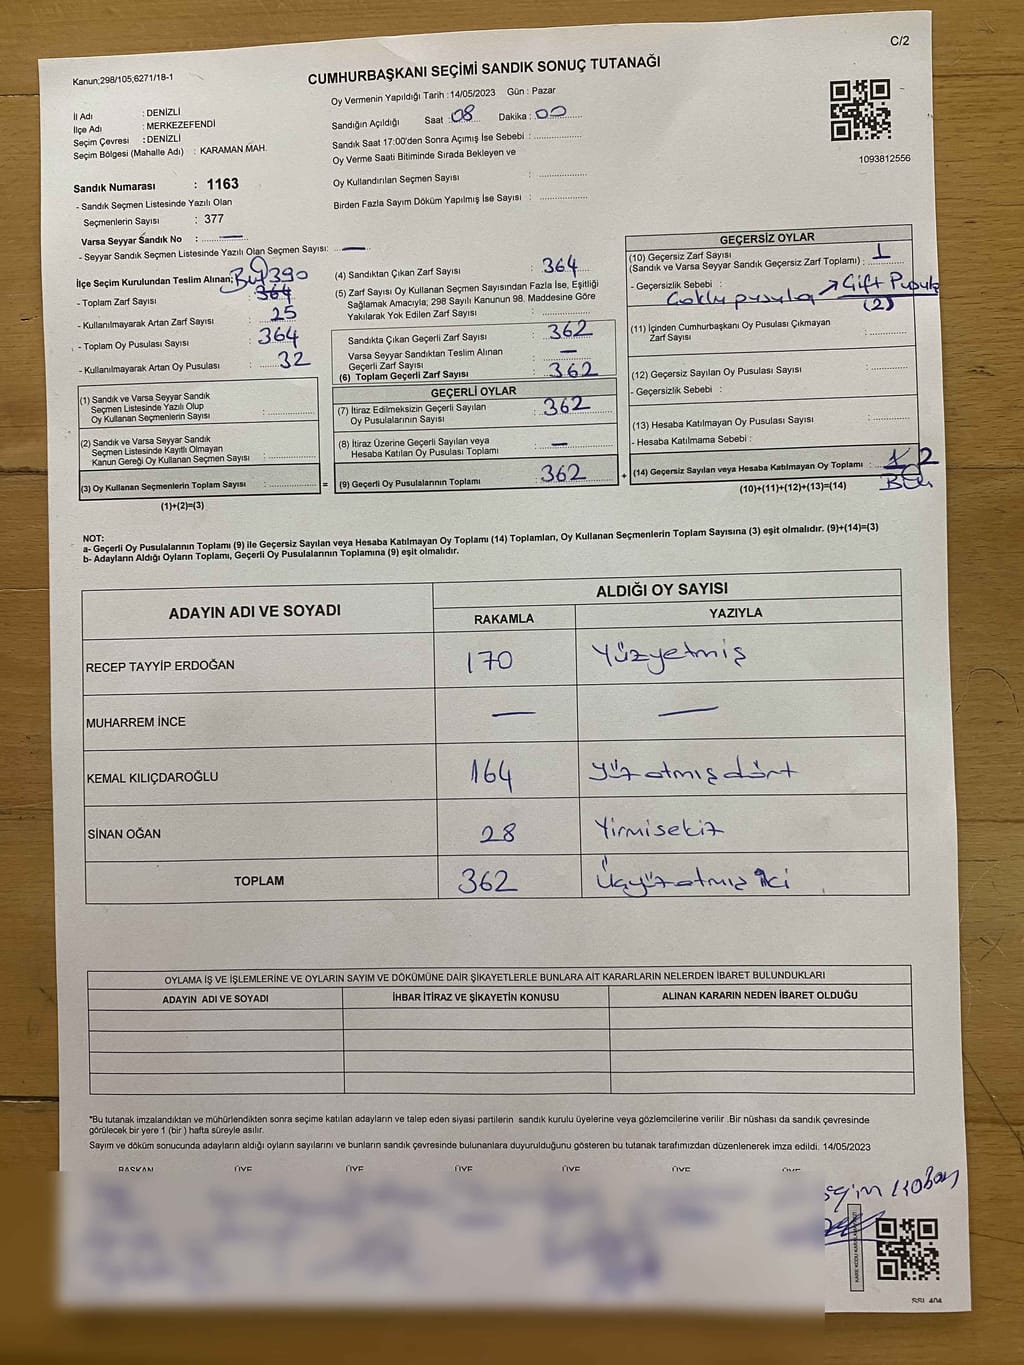 C/2
Kanun;298/105;6271/18-1
CUMHURBAŞKANI SEÇİMİ SANDIK SONUÇ TUTANAĞI
İl Adı : DENİZLİ
İlçe Adı : MERKEZEFENDİ
Seçim Çevresi : DENİZLİ
Seçim Bölgesi (Mahalle Adı) : KARAMAN MAH.
Sandık Numarası : 1163
- Sandık Seçmen Listesinde Yazılı Olan
Seçmenlerin Sayısı : 377
Varsa Seyyar Sandık No : —
- Seyyar Sandık Seçmen Listesinde Yazılı Olan Seçmen Sayısı: —
Oy Vermenin Yapıldığı Tarih :14/05/2023 Gün : Pazar
Sandığın Açıldığı Saat : 08 Dakika : 00
Sandık Saat 17:00'den Sonra Açımış İse Sebebi :
Oy Verme Saati Bitiminde Sırada Bekleyen ve
Oy Kullandırılan Seçmen Sayısı :
Birden Fazla Sayım Döküm Yapılmış İse Sayısı :
1093812556
İlçe Seçim Kurulundan Teslim Alınan; 390
- Toplam Zarf Sayısı : 364
- Kullanılmayarak Artan Zarf Sayısı : 25
- Toplam Oy Pusulası Sayısı : 364
- Kullanılmayarak Artan Oy Pusulası : 32
(1) Sandık ve Varsa Seyyar Sandık
Seçmen Listesinde Yazılı Olup
Oy Kullanan Seçmenlerin Sayısı :
(2) Sandık ve Varsa Seyyar Sandık
Seçmen Listesinde Kayıtlı Olmayan
Kanun Gereği Oy Kullanan Seçmen Sayısı :
(3) Oy Kullanan Seçmenlerin Toplam Sayısı : =
(1)+(2)=(3)
(4) Sandıktan Çıkan Zarf Sayısı : 364
(5) Zarf Sayısı Oy Kullanan Seçmen Sayısından Fazla İse, Eşitliği
Sağlamak Amacıyla; 298 Sayılı Kanunun 98. Maddesine Göre
Yakılarak Yok Edilen Zarf Sayısı :
Sandıkta Çıkan Geçerli Zarf Sayısı : 362
Varsa Seyyar Sandıktan Teslim Alınan
Geçerli Zarf Sayısı : —
(6) Toplam Geçerli Zarf Sayısı : 362
GEÇERLİ OYLAR
(7) İtiraz Edilmeksizin Geçerli Sayılan
Oy Pusulalarının Sayısı : 362
(8) İtiraz Üzerine Geçerli Sayılan veya
Hesaba Katılan Oy Pusulası Toplamı : —
(9) Geçerli Oy Pusulalarının Toplamı : 362 +
GEÇERSİZ OYLAR
(10) Geçersiz Zarf Sayısı
(Sandık ve Varsa Seyyar Sandık Geçersiz Zarf Toplamı) : 1
- Geçersizlik Sebebi : Çoklu pusula → Çift Pusula
(2)
(11) İçinden Cumhurbaşkanı Oy Pusulası Çıkmayan
Zarf Sayısı :
(12) Geçersiz Sayılan Oy Pusulası Sayısı :
- Geçersizlik Sebebi :
(13) Hesaba Katılmayan Oy Pusulası Sayısı :
- Hesaba Katılmama Sebebi :
(14) Geçersiz Sayılan veya Hesaba Katılmayan Oy Toplamı : 1 2
(10)+(11)+(12)+(13)=(14)
NOT:
a- Geçerli Oy Pusulalarının Toplamı (9) ile Geçersiz Sayılan veya Hesaba Katılmayan Oy Toplamı (14) Toplamları, Oy Kullanan Seçmenlerin Toplam Sayısına (3) eşit olmalıdır. (9)+(14)=(3)
b- Adayların Aldığı Oyların Toplamı, Geçerli Oy Pusulalarının Toplamına (9) eşit olmalıdır.
ADAYIN ADI VE SOYADI
ALDIĞI OY SAYISI
RAKAMLA YAZIYLA
RECEP TAYYİP ERDOĞAN 170 Yüzyetmiş
MUHARREM İNCE — —
KEMAL KILIÇDAROĞLU 164 Yüz atmış dört
SİNAN OĞAN 28 Yirmisekiz
TOPLAM 362 Üçyüzatmış iki
OYLAMA İŞ VE İŞLEMLERİNE VE OYLARIN SAYIM VE DÖKÜMÜNE DAİR ŞİKAYETLERLE BUNLARA AİT KARARLARIN NELERDEN İBARET BULUNDUKLARI
ADAYIN ADI VE SOYADI İHBAR İTİRAZ VE ŞİKAYETİN KONUSU ALINAN KARARIN NEDEN İBARET OLDUĞU
*Bu tutanak imzalandıktan ve mühürlendikten sonra seçime katılan adayların ve talep eden siyasi partilerin sandık kurulu üyelerine veya gözlemcilerine verilir .Bir nüshası da sandık çevresinde
görülecek bir yere 1 (bir ) hafta süreyle asılır.
Sayım ve döküm sonucunda adayların aldığı oyların sayılarını ve bunların sandık çevresinde bulunanlara duyurulduğunu gösteren bu tutanak tarafımızdan düzenlenerek imza edildi. 14/05/2023
BAŞKAN ÜYE ÜYE ÜYE ÜYE ÜYE ÜYE